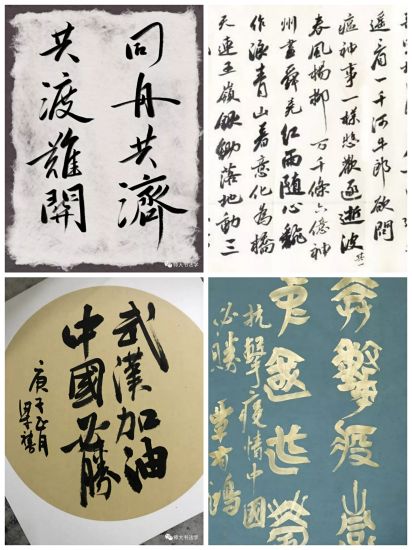 同舟共濟
共渡難關
师大书法学
遥看一千河牛郎欲問
瘟神事一樣悲歡逐逝波
春風楊柳萬千條六億神
州盡舜堯紅雨隨心翻
作浪青山着意化為橋
天連五嶺銀鋤落地動三
武漢加油
中國必勝
庚子正月
师大书法学
抗擊疫情中國
必勝
师大书法学